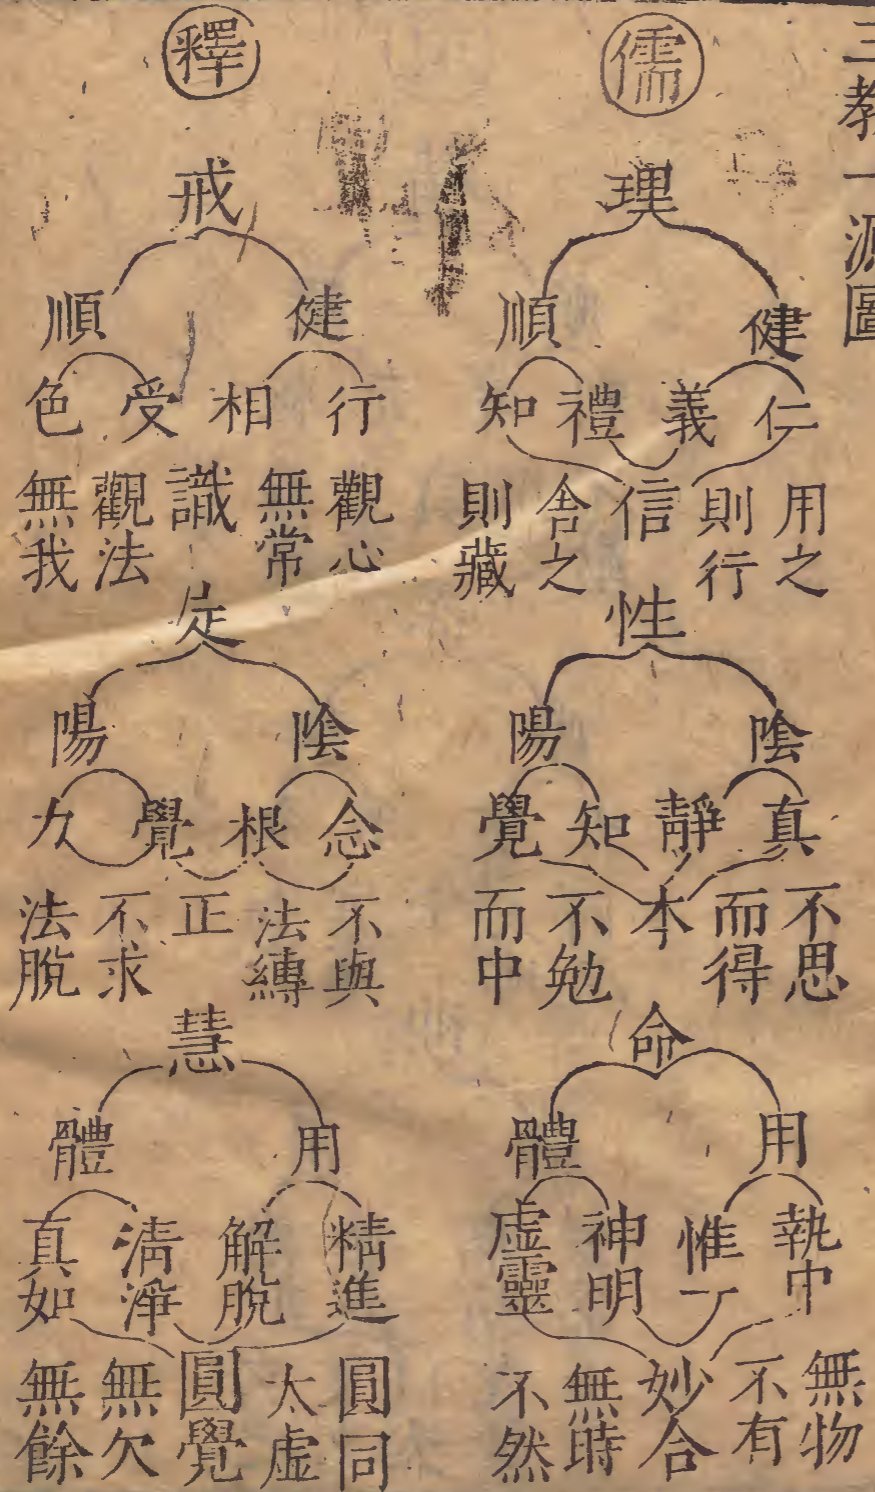 三教一源圖
儒
理
健 順
仁 義 禮 知
用之則行 信 舍之則藏
性
陰 陽
真 靜 知 覺
不思而得 本 不勉而中
命
用 體
執中 惟一 神明 虛靈
無物不有 妙合 無時不然
釋
戒
健 順
行 相 受 色
觀心無常 識 觀法無我
定
陰 陽
念 根 覺 力
不與法縛 正 不求法脫
慧
用 體
精進 解脫 清淨 真如
圓同太虛 圓覺 無欠無餘